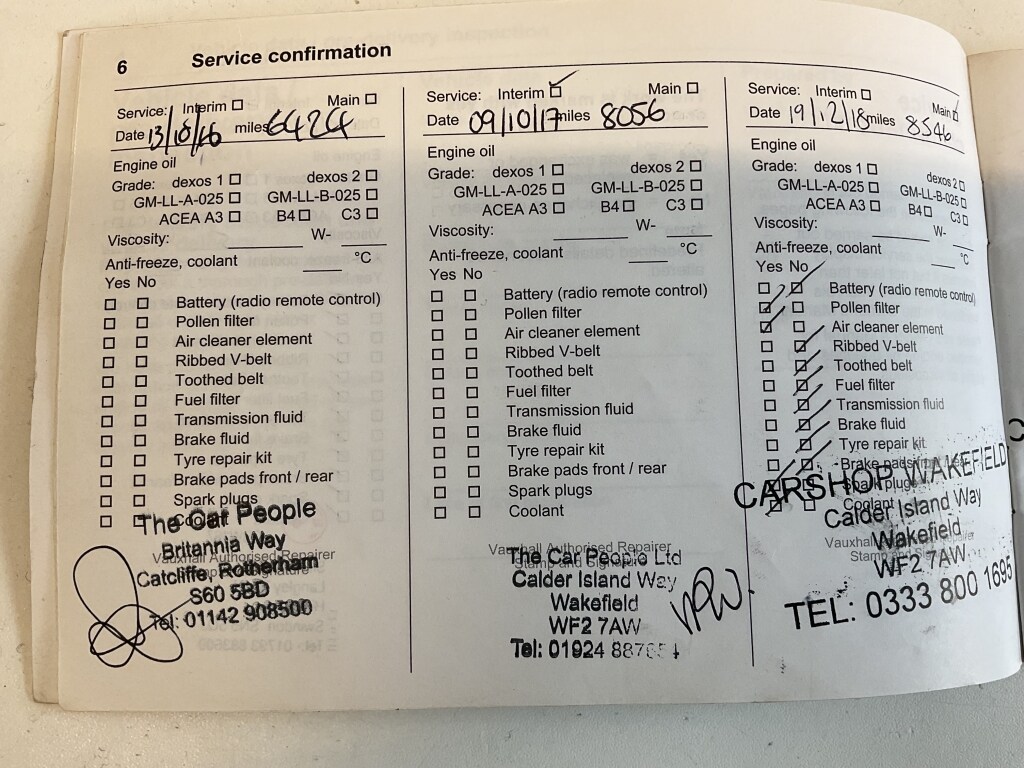 6 Service confirmation
Service: Interim ☐ Main ☐
Date 13/10/16 miles 6424
Engine oil
Grade: dexos 1 ☐ dexos 2 ☐
GM-LL-A-025 ☐ GM-LL-B-025 ☐
ACEA A3 ☐ B4 ☐ C3 ☐
Viscosity: W-
Anti-freeze, coolant °C
Yes No
Battery (radio remote control)
Pollen filter
Air cleaner element
Ribbed V-belt
Toothed belt
Fuel filter
Transmission fluid
Brake fluid
Tyre repair kit
Brake pads front / rear
Spark plugs
Coolant
Vauxhall Authorised Repairer
Stamp and Signature
The Car People
Britannia Way
Catcliffe, Rotherham
S60 5BD
Tel: 01142 908500
Service: Interim ☑ Main ☐
Date 09/10/17 miles 8056
Engine oil
Grade: dexos 1 ☐ dexos 2 ☐
GM-LL-A-025 ☐ GM-LL-B-025 ☐
ACEA A3 ☐ B4 ☐ C3 ☐
Viscosity: W-
Anti-freeze, coolant °C
Yes No
Battery (radio remote control)
Pollen filter
Air cleaner element
Ribbed V-belt
Toothed belt
Fuel filter
Transmission fluid
Brake fluid
Tyre repair kit
Brake pads front / rear
Spark plugs
Coolant
Vauxhall Authorised Repairer
Stamp and Signature
The Car People Ltd
Calder Island Way
Wakefield
WF2 7AW
Tel: 01924 887654
Service: Interim ☐ Main ☑
Date 19/12/18 miles 8546
Engine oil
Grade: dexos 1 ☐ dexos 2 ☐
GM-LL-A-025 ☐ GM-LL-B-025 ☐
ACEA A3 ☐ B4 ☐ C3 ☐
Viscosity: W-
Anti-freeze, coolant °C
Yes No
Battery (radio remote control)
Pollen filter
Air cleaner element
Ribbed V-belt
Toothed belt
Fuel filter
Transmission fluid
Brake fluid
Tyre repair kit
Brake pads front / rear
Spark plugs
Coolant
Vauxhall Authorised Repairer
Stamp and Signature
CARSHOP WAKEFIELD
Calder Island Way
Wakefield
WF2 7AW
TEL: 0333 800 1695